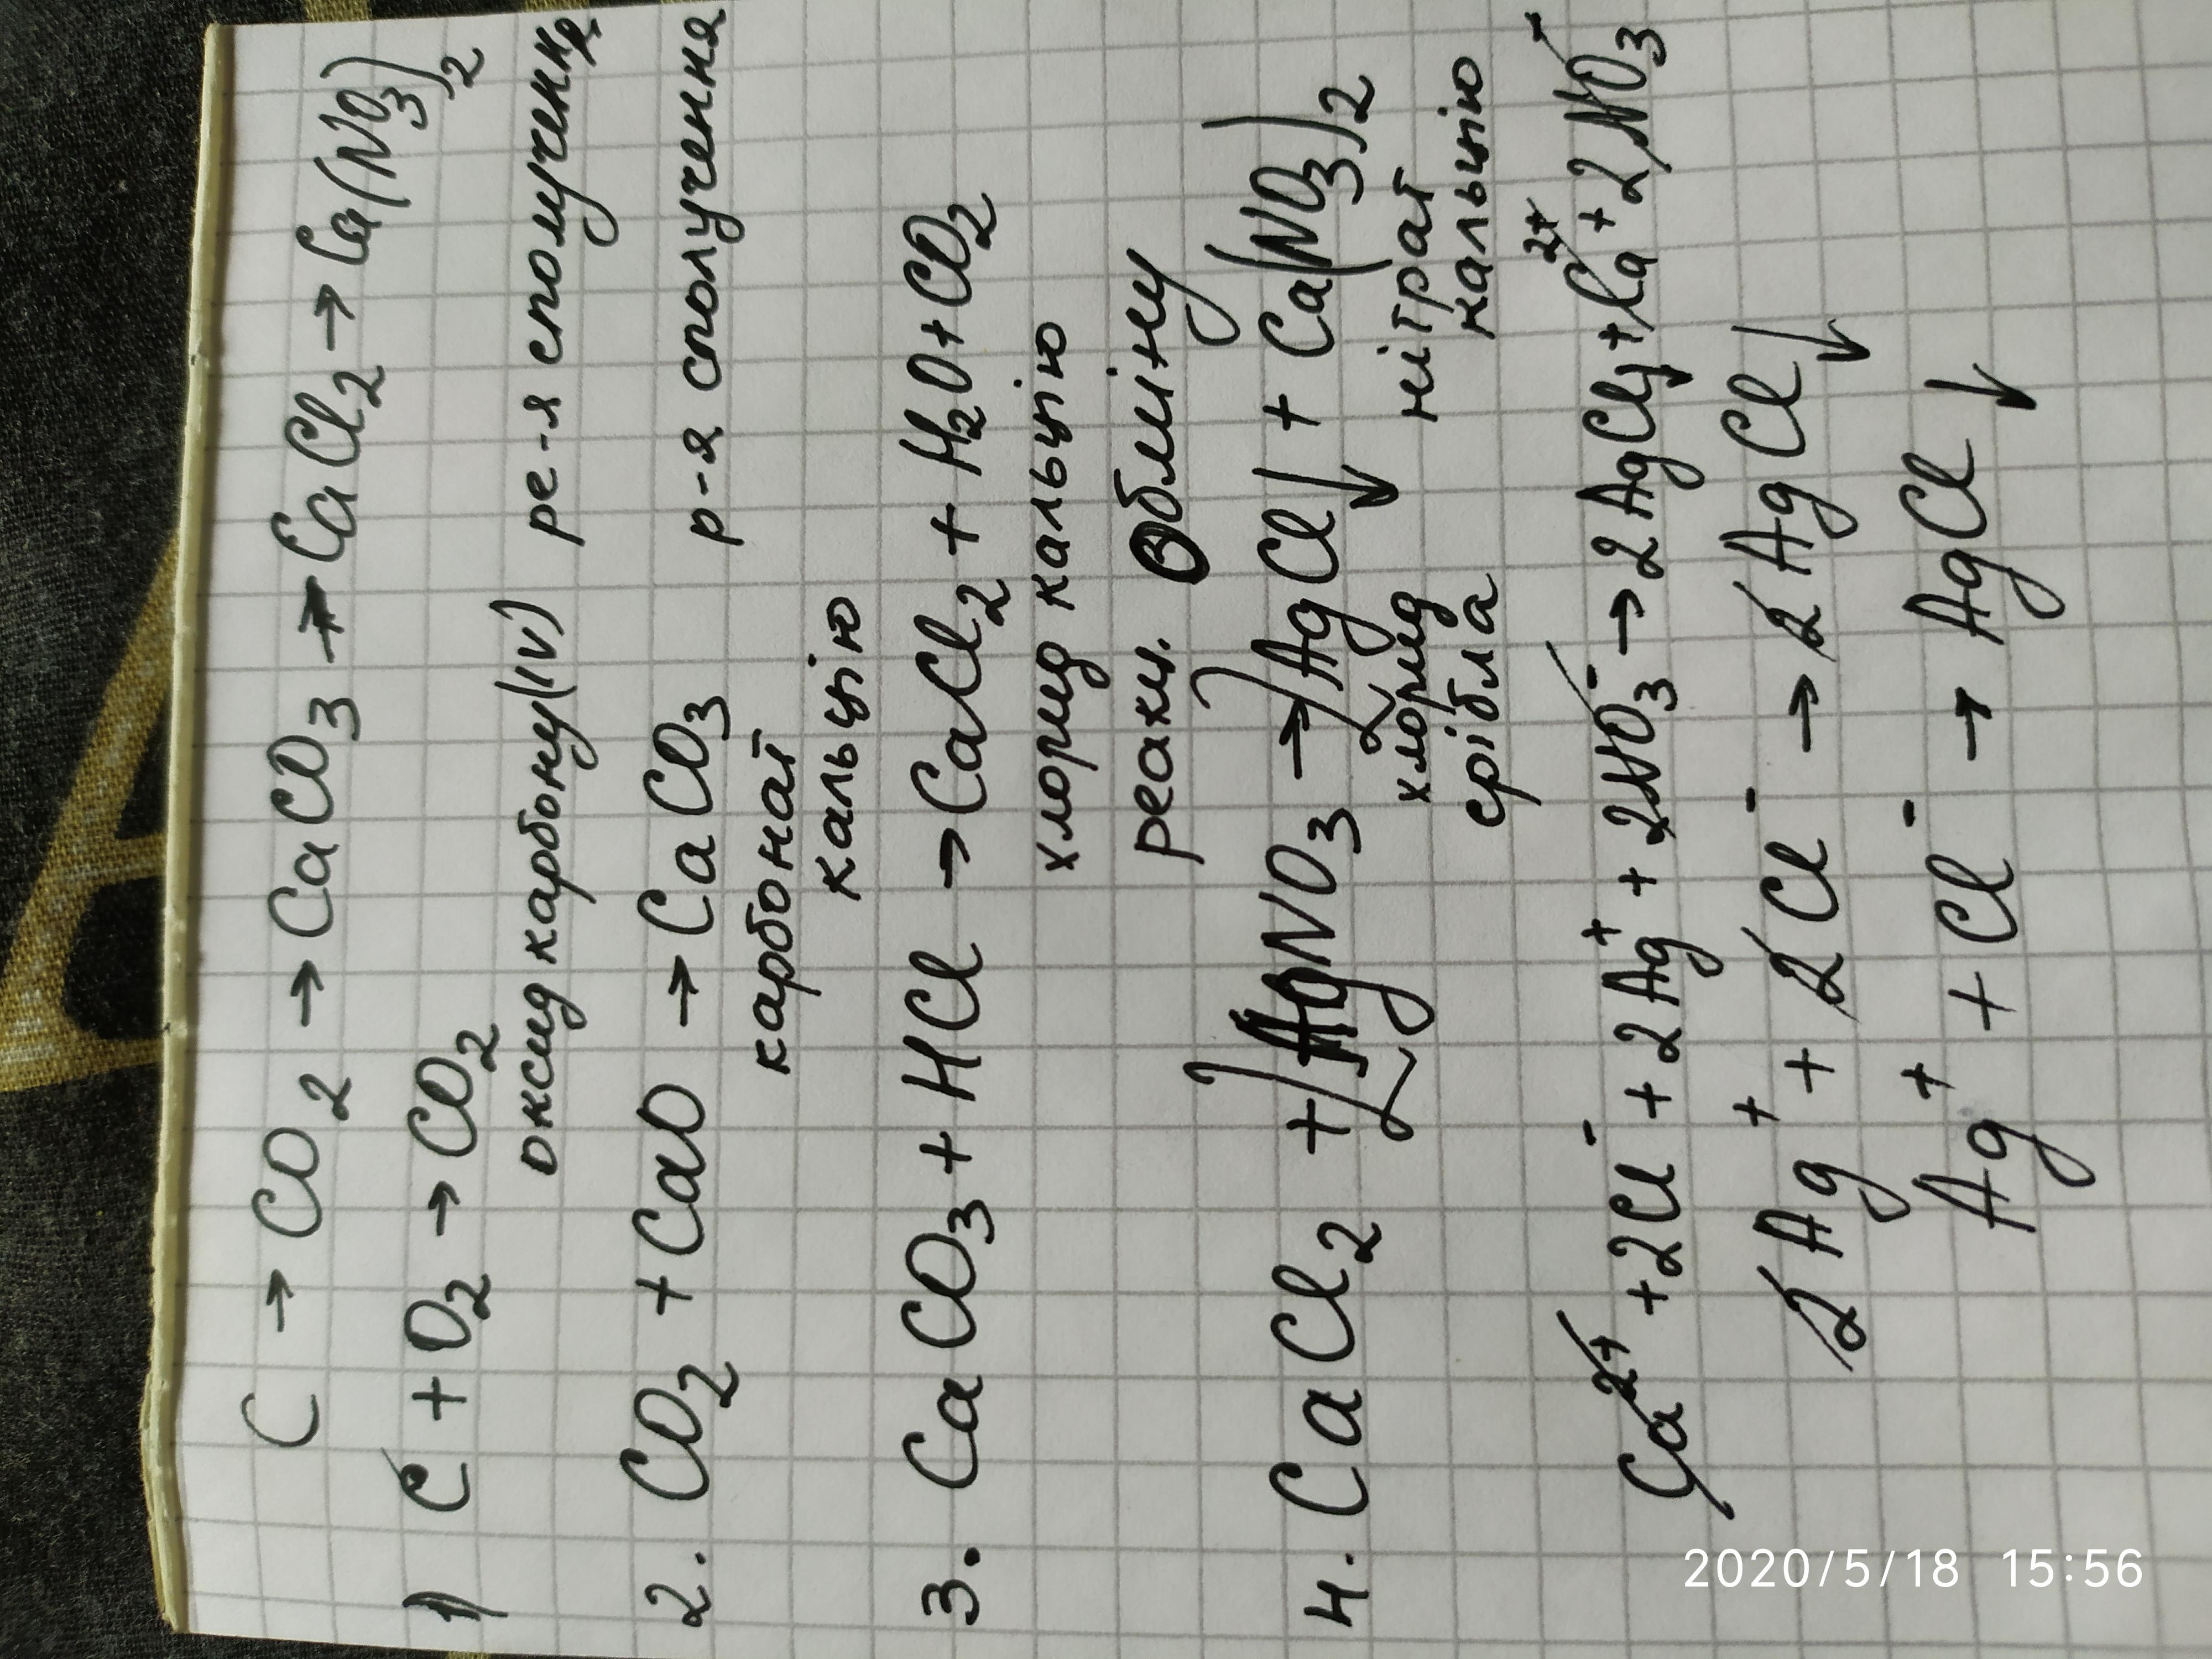 C → CO2 → CaCO3 → CaCl2 → Ca(NO3)2
1) C + O2 → CO2
оксид карбону(IV) ре-я сполучення
2. CO2 + CaO → CaCO3 р-я сполучення
карбонат
кальцію
3. CaCO3 + HCl → CaCl2 + H2O + CO2
хлорид кальцію
реакц. Обміну
4. CaCl2 + 2AgNO3 → 2AgCl↓ + Ca(NO3)2
хлорид нітрат
срібла кальцію
Ca2+ + 2Cl- + 2Ag+ + 2NO3- → 2AgCl↓ + Ca2+ + 2NO3-
2Ag+ + 2Cl- → 2AgCl↓
Ag+ + Cl- → AgCl↓
2020/5/18 15:56